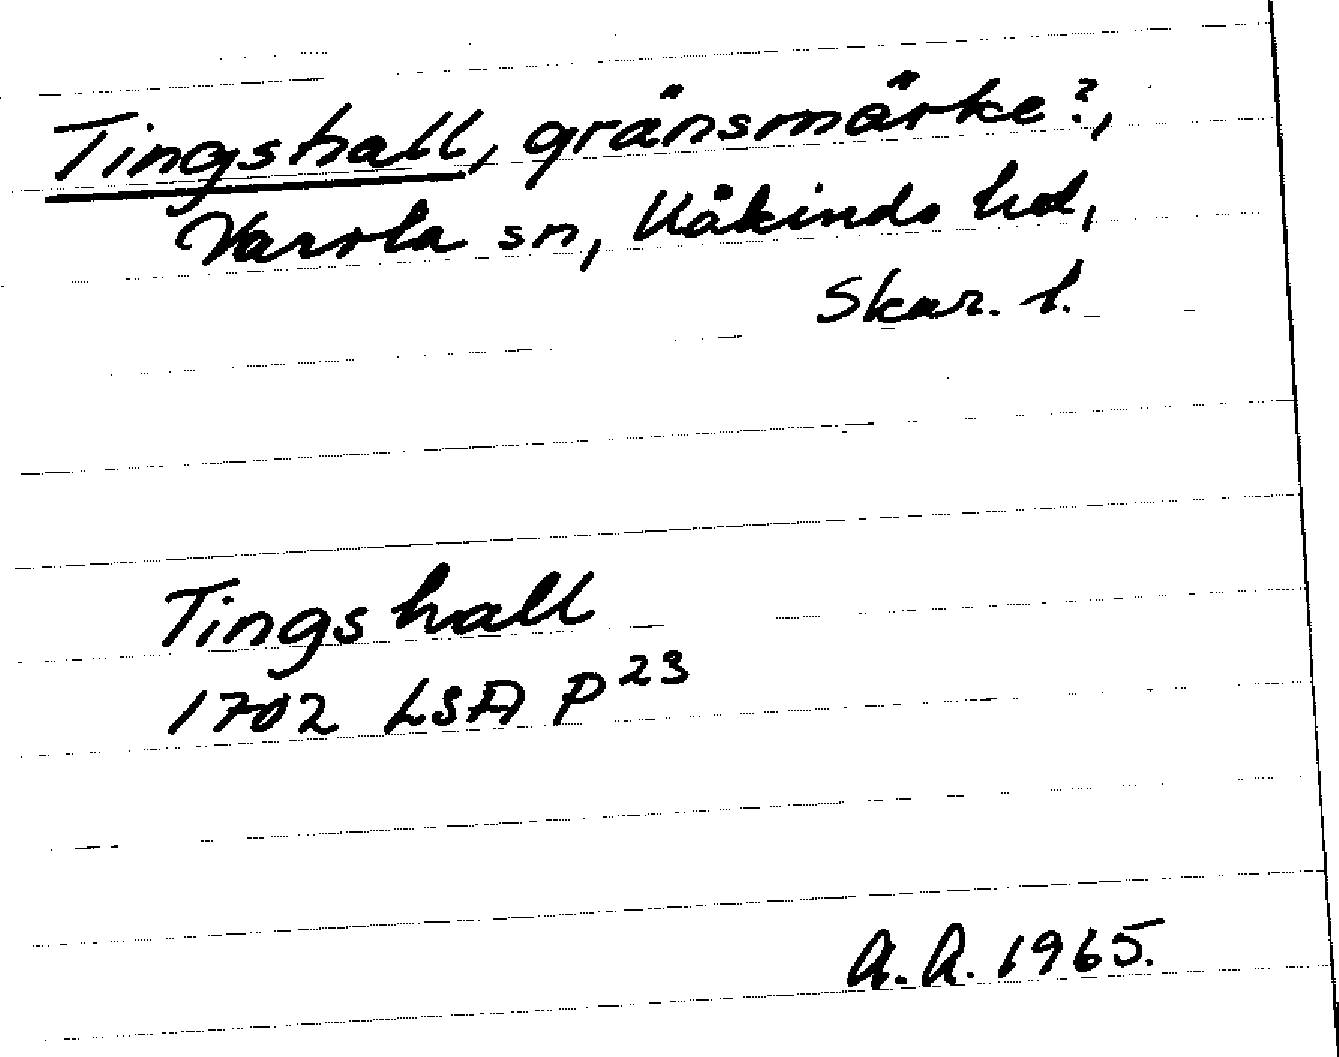 Tingshall, gränsmärke?,
Varola sn, Kåkinds hd,
Skar. l.
Tingshall
1702 LSA P 23
A.A. 1965.